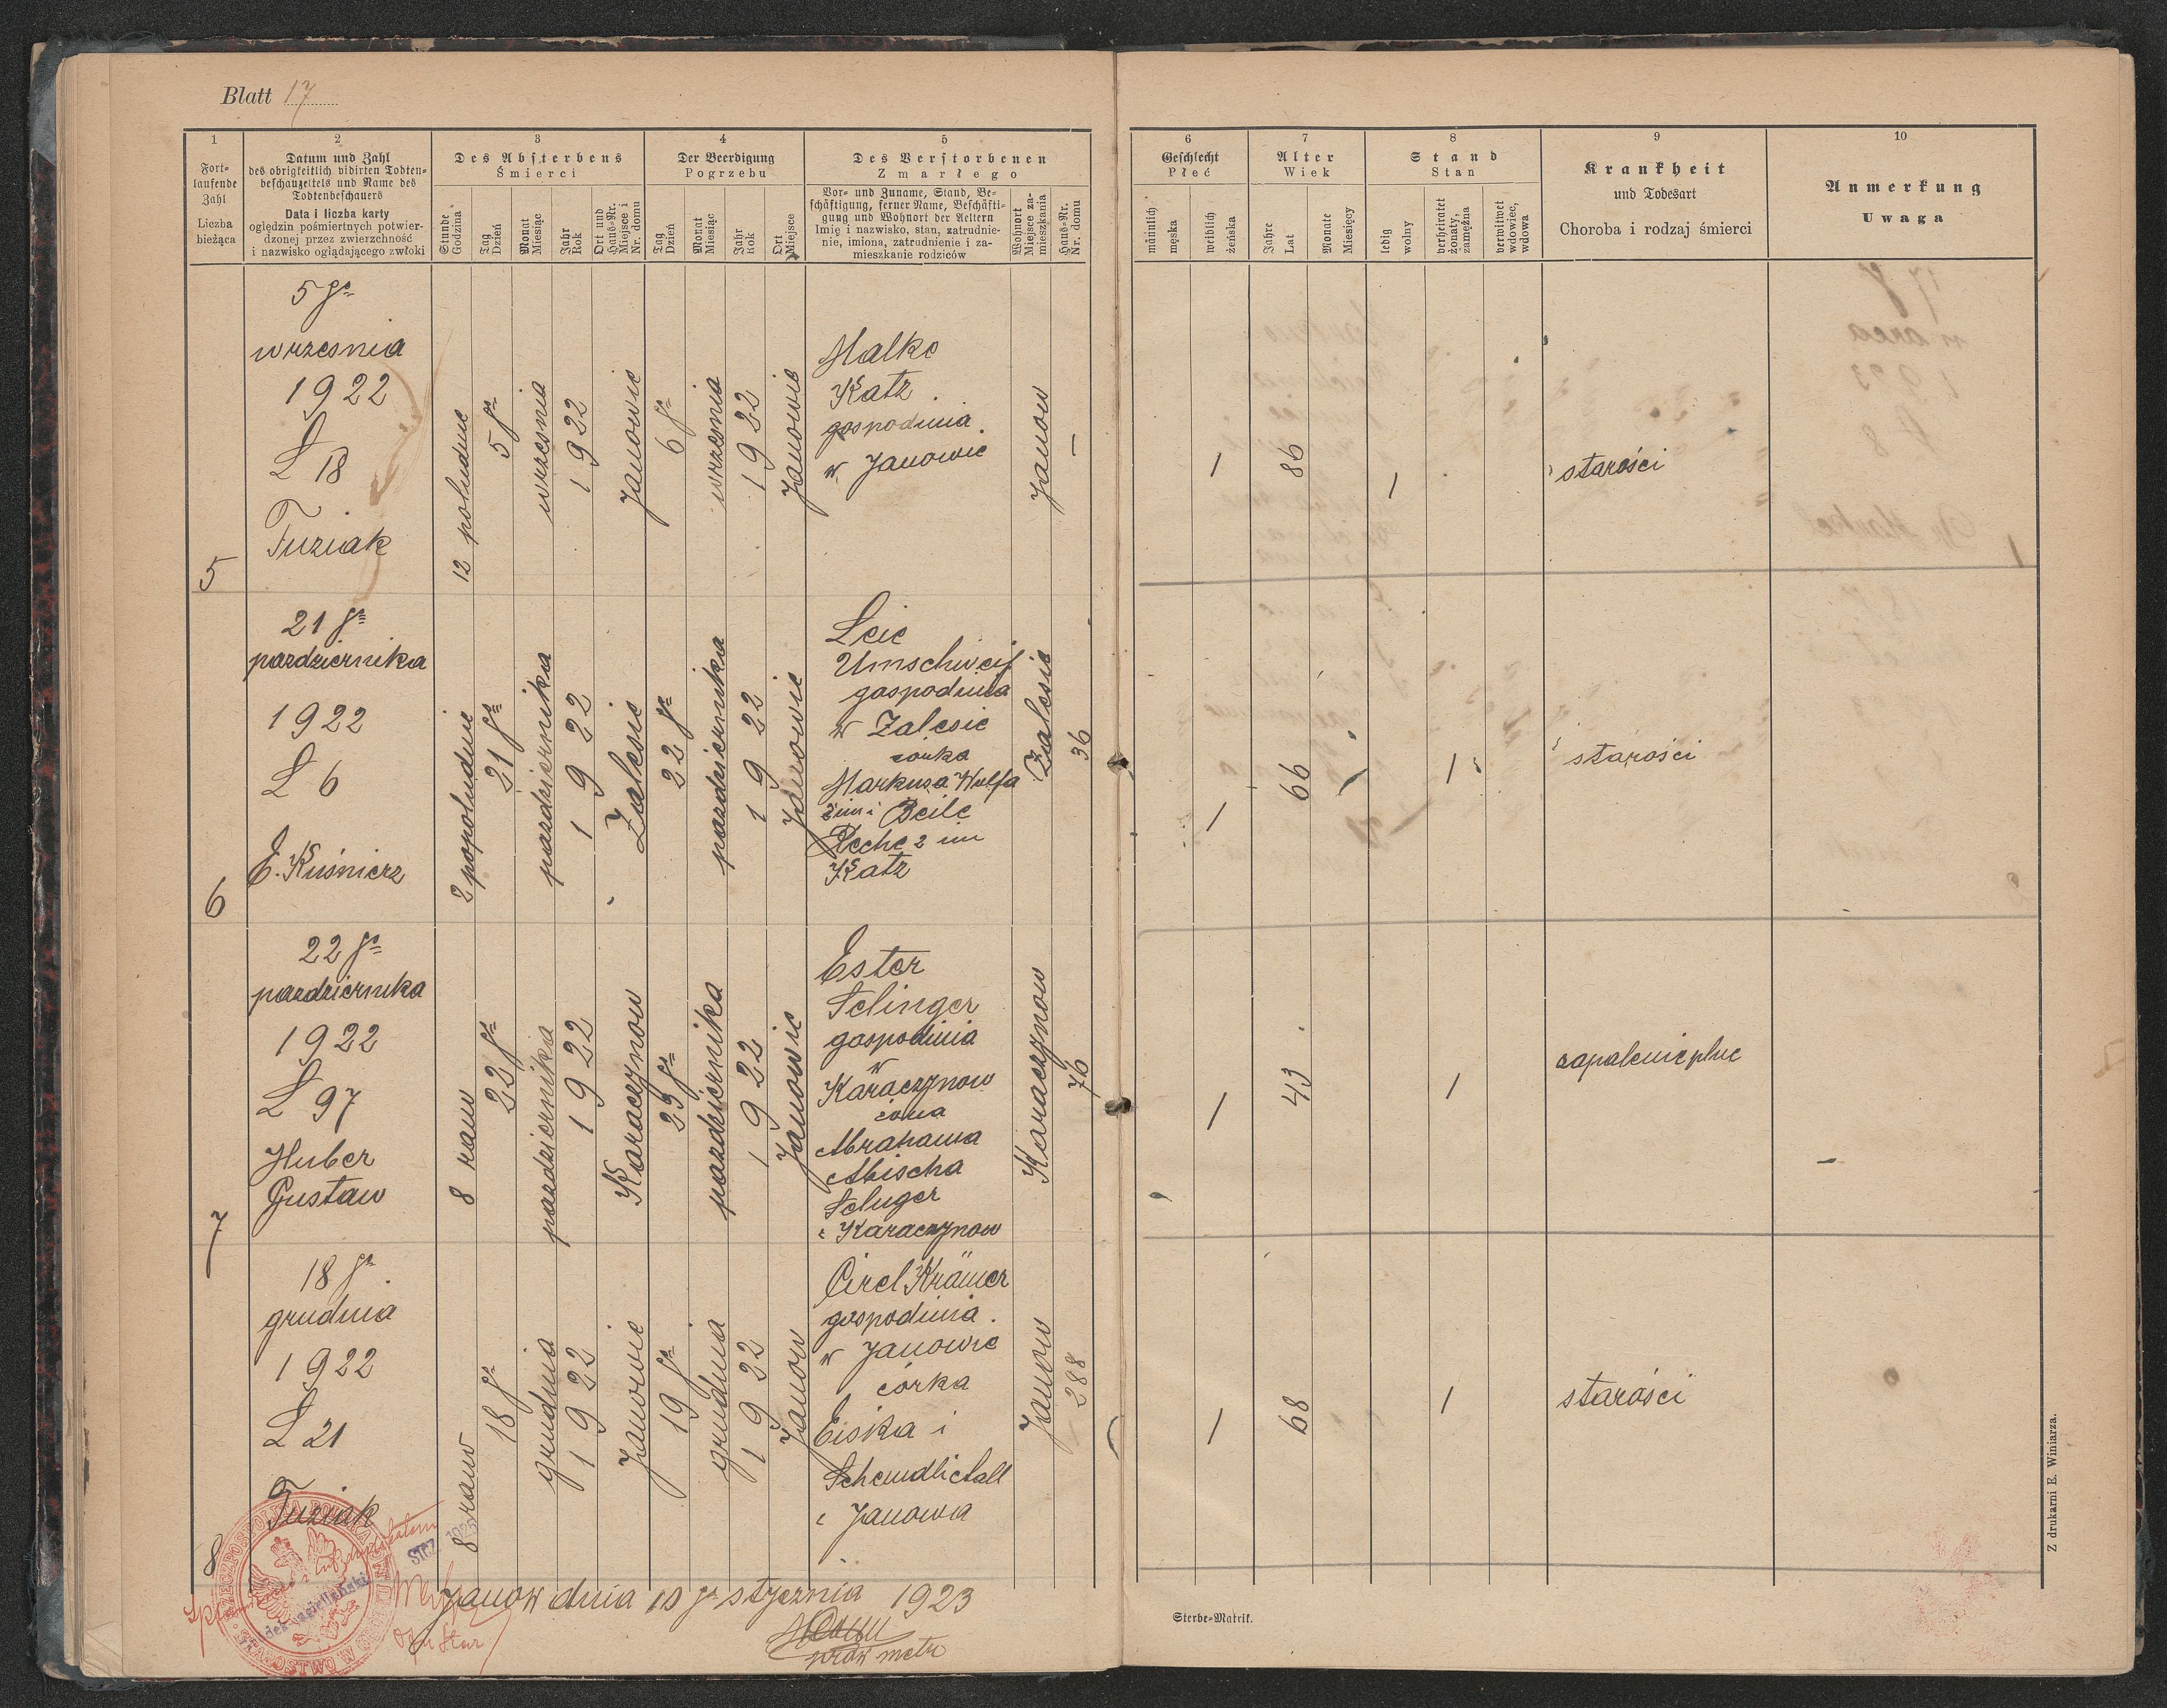 Blatt 17
1
Fort-
laufende
Zahl
Liczba
bieżąca
2
Datum und Zahl
des obrigkeitlich vidirten Todten-
beschauzettels und Name des
Todtenbeschauers
Data i liczba karty
oględzin pośmiertnych potwier-
dzonej przez zwierzchność
i nazwisko oglądającego zwłoki
3
Des Absterbens
Śmierci
Stunde
Godzina
Tag
Dzień
Monat
Miesiąc
Jahr
Rok
Ort und
Haus-Nr.
Miejsce i
Nr. domu
4
Der Beerdigung
Pogrzebu
Tag
Dzień
Monat
Miesiąc
Jahr
Rok
Ort
Miejsce
5
Des Verstorbenen
Zmarłego
Vor- und Zuname, Stand, Be-
schäftigung, ferner Name, Beschäfti-
gung und Wohnort der Aeltern
Imię i nazwisko, stan, zatrudnie-
nie, imiona, zatrudnienie i za-
mieszkanie rodziców
Wohnort
Miejsce za-
mieszkania
Haus-Nr.
Nr. domu
6
Geschlecht
Płeć
männlich
męska
weiblich
żeńska
7
Alter
Wiek
Jahre
Lat
Monate
Miesięcy
8
Stand
Stan
ledig
wolny
verheiratet
żonaty,
zamężna
verwitwet
wdowiec,
wdowa
9
Krankheit
und Todesart
Choroba i rodzaj śmierci
10
Anmerkung
Uwaga
5
5 go
wrzesnia
1922
L 18
Tuziak
12 południe
5 go
wrzesnia
1922
Janowie
6 go
wrzesnia
1922
Janowie
Malke
Katz
gospodinia
w Janowie
Janow
—
1
86
1
starości
6
21 go
pazdziernika
1922
L 6
E. Kuśnierz
2 popołudnie
21 go
pazdziernika
1922
Zalesie
22 go
pazdziernika
1922
Janowie
Leie
Umschweif
gospodinia
w Zalesie
córka
Markusa Wolfa
2 im i Beile
Reche 2 im
Katz
Zalesie
36
1
66
1
starości
7
22 go
pazdziernika
1922
L 97
Huber
Gustaw
8 rano
22 go
pazdziernika
1922
Karaczynow
23 go
pazdziernika
1922
Janowie
Ester
Selinger
gospodinia
w
Karaczynow
żona
Abrahama
Abischa
Selnger
z Karaczynow
Karaczynow
76
1
43
1
zapalenie pluc
8
18 go
grudnia
1922
L 21
Tuziak
8 rano
18 go
grudnia
1922
Janowie
19 go
grudnia
1922
Janow
Cirel Krämer
gospodinia
w Janowie
córka
Eiska i
z Janowa
Janow
288
1
68
1
starości
Janow dnia 10 go stycznia 1923
Sterbe-Matrik.
Z drukarni E. Winiarza.